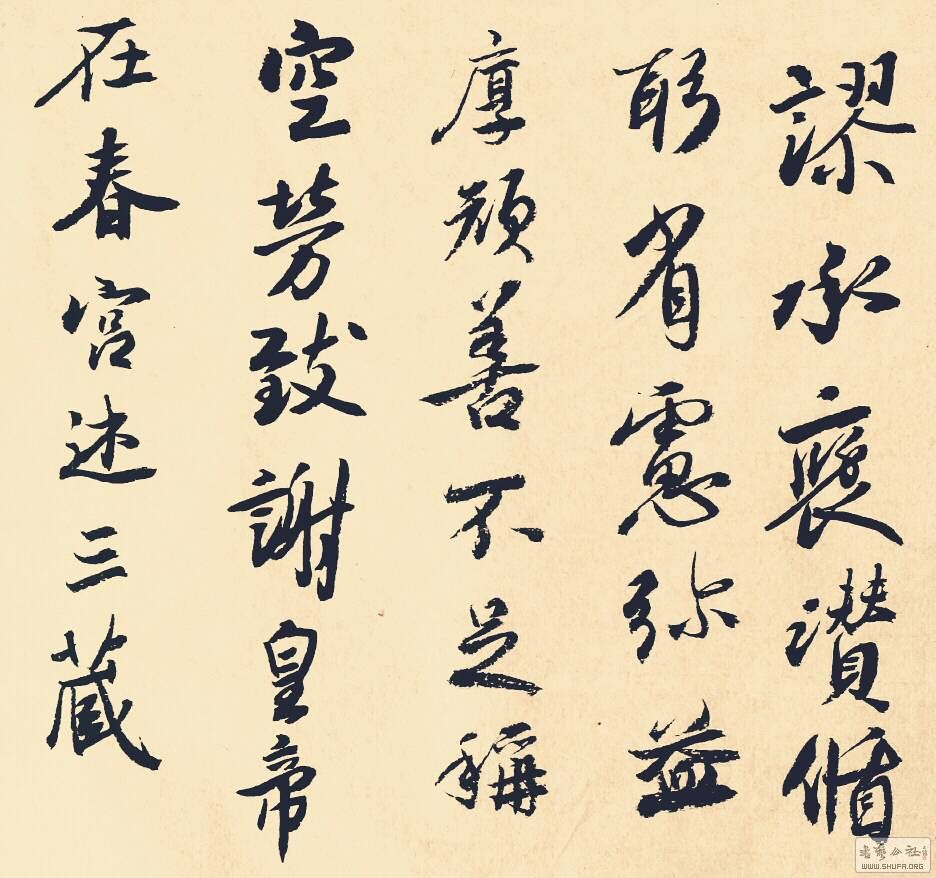 謬承褒讚循
躬省慮彌益
厚顏善不足稱
空勞致謝皇帝
在春宮述三藏
书艺公社
WWW.SHUFA.ORG